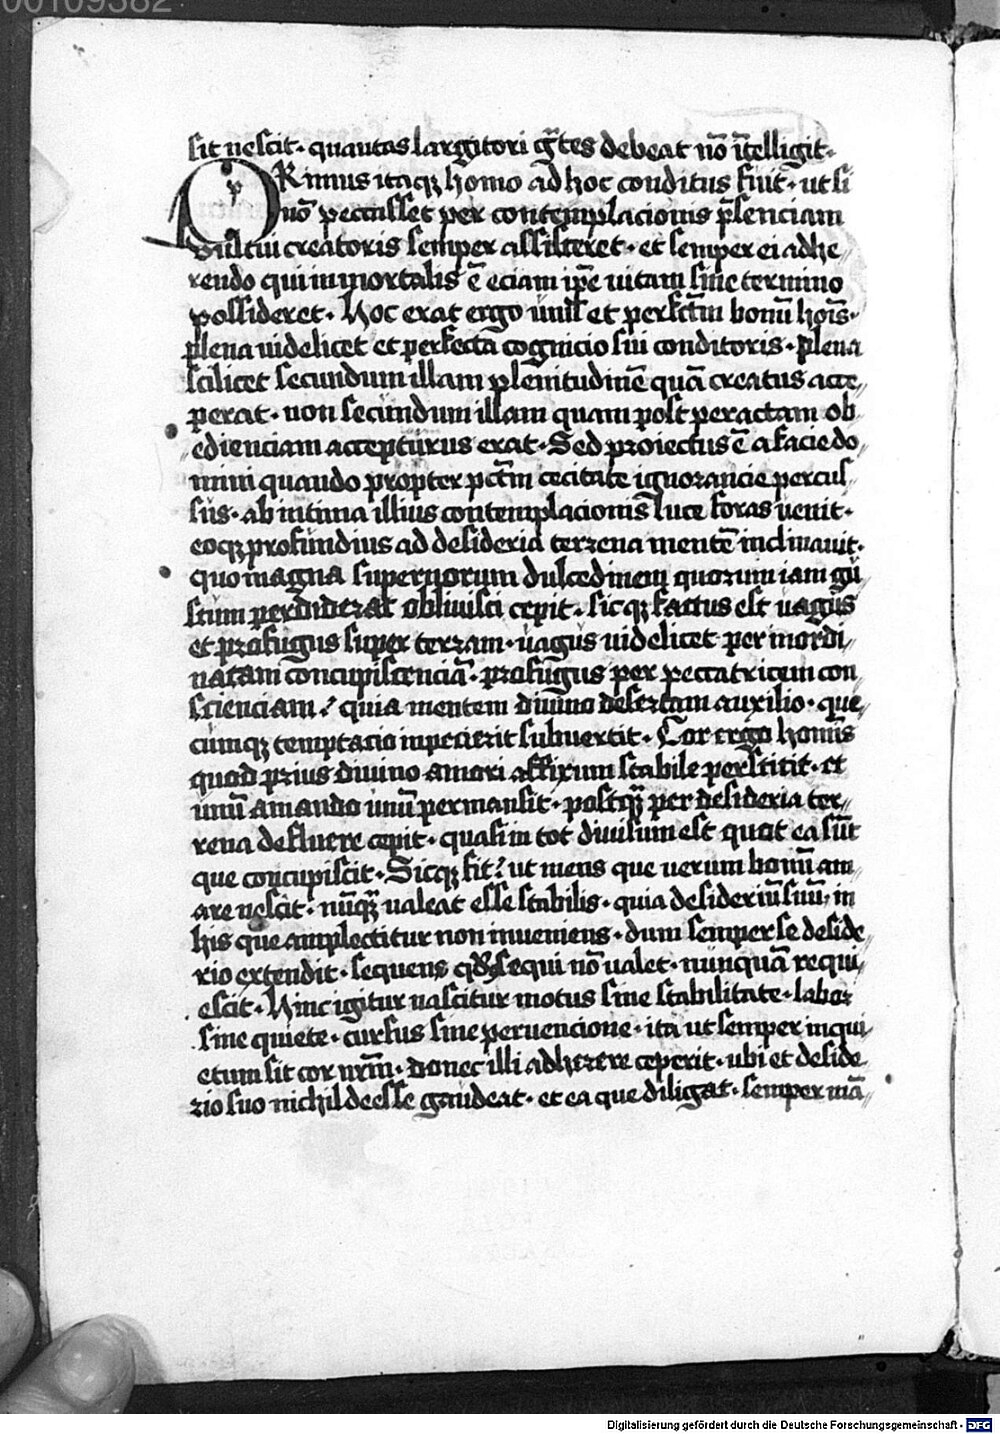 00109382
sit nescit · quantas largitori gr̃tes debeat nõ ĩtelligit ·
PRimus itaqꝫ homo ad hoc conditus fuit · ut si
nõ peccasset per contemplacionis p̃senciam
vultui creatoris semper assisteret · et semper ei adhe„
rendo qui inmortalis ẽ eciam ip̃e uitam sine termino
possideret · Hoc erat ergo unũ et perfc̃tm bonũ hoĩs ·
plena uidelicet et perfecta cognicio sui conditoris · plena
scilicet secundum illam plenitudinẽ quã creatus acce„
perat · non secundum illam quam post peractam ob„
edienciam accepturus erat · Sed proiectus ẽ a facie do„
mini quando propter pctm̃ cecitate ignorancie percus„
sus · ab intima illius contemplacionis luce foras uenit ·
eoqꝫ profundius ad desideria terrena mentẽ inclinauit ·
quo magna supernorum dulcedinem quorum iam gu„
stum perdiderat obliuisci cepit · sicqꝫ factus est uagus
et profugus super terram · uagus uidelicet per inordi„
natam concupiscenciã · profugus per peccatricem con„
scienciam · quia mentem diuino desertam auxilio · que„
cumqꝫ temptacio inpecierit subuertit · Cor ergo hominis
quod prius diuino amori affixum stabile perstitit · et
unũ amando unũ permansit · postqꝫ̃ per desideria ter„
rena defluere cepit · quasi in tot diuisum est quot ea sũt
que concupiscit · Sicqꝫ fit · ut mens que uerum bonũ am„
are nescit · nũqꝫ̃ ualeat esse stabilis · quia desideriũ suũ in
his que amplectitur non inueniens · dum semper se deside„
rio extendit · sequens qd̃ assequi nõ ualet · nunquã requi„
escit · Hinc igitur nascitur motus sine stabilitate · labor
sine quiete · cursus sine peruencione · ita ut semper inqui„
etum sit cor nr̃m · donec illi adherere ceperit · ubi et deside„
rio suo nichil deesse gaudeat · et ea que diligat · semper mã„
Digitalisierung gefördert durch die Deutsche Forschungsgemeinschaft - DFG